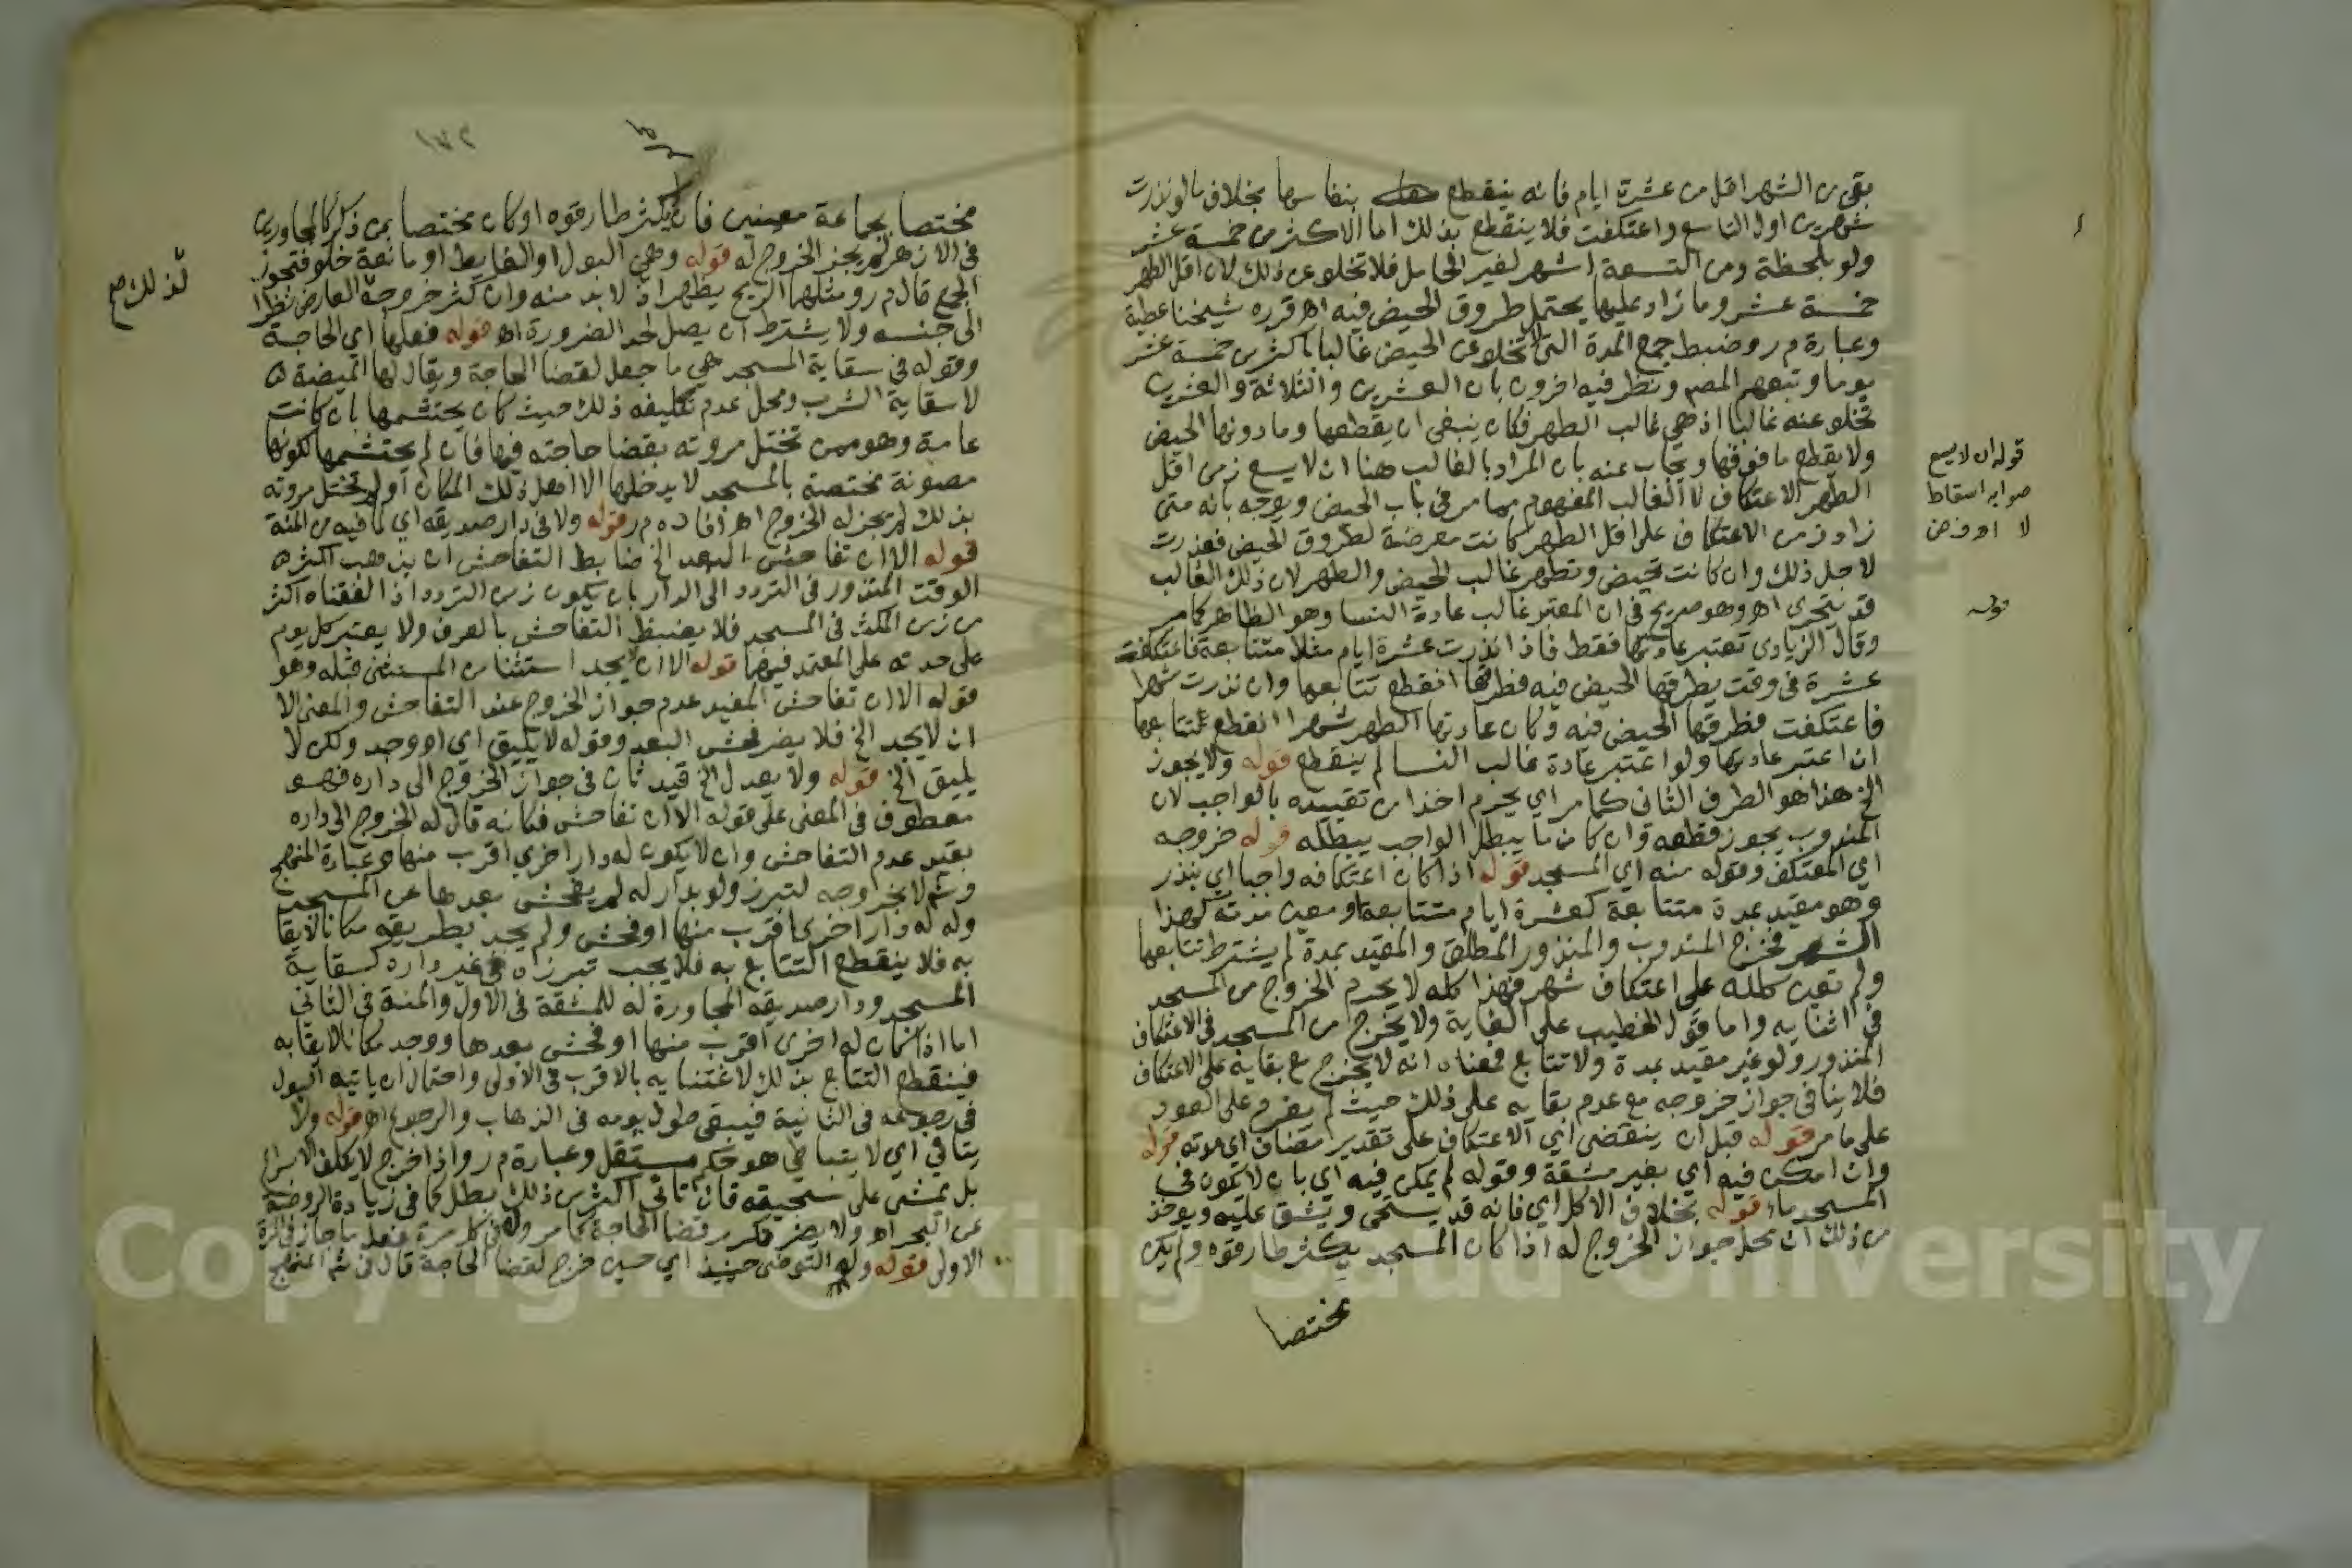 بقى من الشهر اقل من عشرة ايام فانه ينقطع بنفاسها بخلاف ما لو نذرت
شهرين اول التاسع واعتكفت فلا ينقطع بذلك اما الاكثر من خمسة عشر
ولو بلحظة ومن التسعة اشهر لغير الحامل فلا تخلو عن ذلك لان اقل الطهر
خمسة عشر وما زاد عليها يحتمل طروق الحيض فيه اهـ قرره شيخنا عطية
وعبارة م ر وضبط جمع المدة التي لا تخلو عن الحيض غالبا باكثر من خمسة عشر
يوما وتبعهم المصم ونظر فيه اخرون بان العشرين والثلاثة والعشرين
تخلو عنه غالبا اذ هي غالب الطهر فكان ينبغي ان يقطعها وما دونها الحيض
ولا يقطع ما فوقها ويجاب عنه بان المراد بالغالب هنا ان لا يسع زمن اقل
الطهر الاعتكاف لا الغالب المفهوم مما مر في باب الحيض ويوجه بانه متى
زاد زمن الاعتكاف على اقل الطهر كانت معرضة لطروق الحيض فعذرت
لاجل ذلك وان كانت تحيض وتطهر غالب الحيض والطهر لان ذلك الغالب
قد يتجزى اهـ وهو صريح في ان المعتبر غالب عادة النسا وهو الظاهر كما مر
وقال الزيادى تعتبر عادتها فقط فاذا نذرت عشرة ايام مثلا متتابعة فاعتكفت
عشرة في وقت يطرقها الحيض فيه فطرقها انقطع تتابعها وان نذرت شهرا
فاعتكفت فطرقها الحيض فيه وكان عادتها الطهر شهرا انقطع تتابعها
ان اعتبر عادتها ولو اعتبر عادة غالب النسا لم ينقطع قوله ولا يجوز
الخ هذا هو الطرف الثاني كما مر اي يحرم اخذا من تقييده بالواجب لان
المندوب يجوز قطعه وان كان ما يبطل الواجب يبطله قوله خروجه
اي المعتكف وقوله منه اي المسجد قوله اذا كان اعتكافه واجبا اي بنذر
وهو مقيد بمدة متتابعة كعشرة ايام متتابعة او معين مدته كهذا
الشهر فخرج المندوب والمنذور المطلق والمقيد بمدة لم يشترط تتابعها
ولم تعين كلله على اعتكاف شهر فهذا كله لا يحرم الخروج من المسجد
في اثنايه واما قول الخطيب على الغاية ولا يخرج من المسجد في الاعتكاف
المنذور ولو غير مقيد بمدة ولا تتابع فمعناه انه لا يخرج مع بقايه على الاعتكاف
فلا ينافي جواز خروجه مع عدم بقايه على ذلك حيث لم يعزم على العود
على ما مر قوله قبل ان ينقضى اي الاعتكاف على تقدير مضاف اي مدته قوله
وان امكن فيه اي بغير مشقة وقوله لم يمكن فيه اي بان لا يكون في
المسجد ماء قوله بخلاف الاكل اي فانه قد يستحى ويشق عليه ويوخذ
من ذلك ان محل جواز الخروج له اذا كان المسجد يكثر طارقوه ولم يكن
مختصا
قوله ان لا يسع
صوابه اسقاط
لا اهـ
١٧٢
مختصا بجماعة معينين فان لم يكثر طارقوه او كان مختصا بمن ذكر كالمجاورين
في الازهر لم يجز الخروج له قوله وهي البول او الغايط او مانعة خلو فتجوز
الجمع قال م ر ومثلهما الريح يظهر اذ لا بد منه وان كثر خروجه لعارض نظرا
الى جنسه ولا يشترط ان يصل لحد الضرورة اهـ قوله فعلها اي الحاجة
وقوله في سقاية المسجد هي ما جعل لقضا الحاجة ويقال لها الميضة
لا سقاية الشرب ومحل عدم تكليفه ذلك حيث كان يحتشمها بان كانت
عامة وهو ممن تختل مروته بقضا حاجته فيها فان لم يحتشمها لكونها
مصونة مختصة بالمسجد لا يدخلها الا اهل ذلك المكان او لم تختل مروته
بذلك لم يجز له الخروج اهـ افاده م ر قوله ولا في دار صديقه اي لما فيه من المنة
قوله الا ان تفاحش البعد الخ ضابط التفاحش ان يذهب اكثر
الوقت المنذور في التردد الى الدار بان يكون زمن التردد اذا لفقناه اكثر
من زمن المكث في المسجد فلا يضبط التفاحش بالعرف ولا يعتبر كل يوم
على حدته على المعتمد فيهما قوله الا ان لا يجد استثنا من المستثنى قبله وهو
قوله الا ان تفاحش المفيد عدم جواز الخروج عند التفاحش والمعنى الا
ان لا يجد الخ فلا يضر فحش البعد وقوله لا يليق اي او وجد ولكن لا
يليق الخ قوله ولا بعدل الخ قيد ثان في جواز الخروج الى داره فهو
معطوف في المعنى على قوله الا ان تفاحش فكانه قال له الخروج الى داره
بقيد عدم التفاحش وان لا يكون له دار اخرى اقرب منها وعبارة المنهج
وشرحه لا بخروجه لتبرز ولو بدار له لم يفحش بعدها عن المسجد
وله دار اخرى اقرب منها او فحش ولم يجد بطريقه مكانا لايقا
به فلا ينقطع التتابع به فلا يجب تبرزه في غير داره كسقاية
المسجد ودار صديقه المجاورة له للمشقة في الاول والمنة في الثاني
اما اذا كان له اخرى اقرب منها او فحش بعدها ووجد مكانا لايقا به
فينقطع التتابع بذلك لاغتنايه بالاقرب في الاولى واحتمال ان ياتيه البول
في رجوعه في الثانية فيبقى طول يومه في الذهاب والرجوع اهـ قوله ولا
يتانى اي لا يتباطى هو حكم مستقل وعبارة م ر واذا خرج لا يكلف الاسراع
بل يمشى على سجيته فان تانى اكثر من ذلك بطل كما في زيادة الروضة
عن البحر اهـ ولا يضر تكرر قضا الحاجة كما مر وله في كل مرة فعل ما جاز في المرة
الاولى قوله وله التوضى حينيذ اي حين خرج لقضا الحاجة قال في شرح المنهج
لذلك صح
Copyright © King Saud University